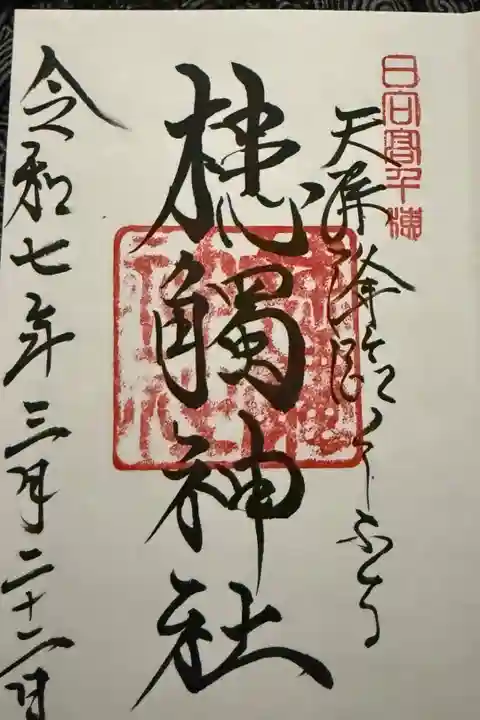 日向高千穂
天孫降臨
槵觸神社
令和七年三月二十二日